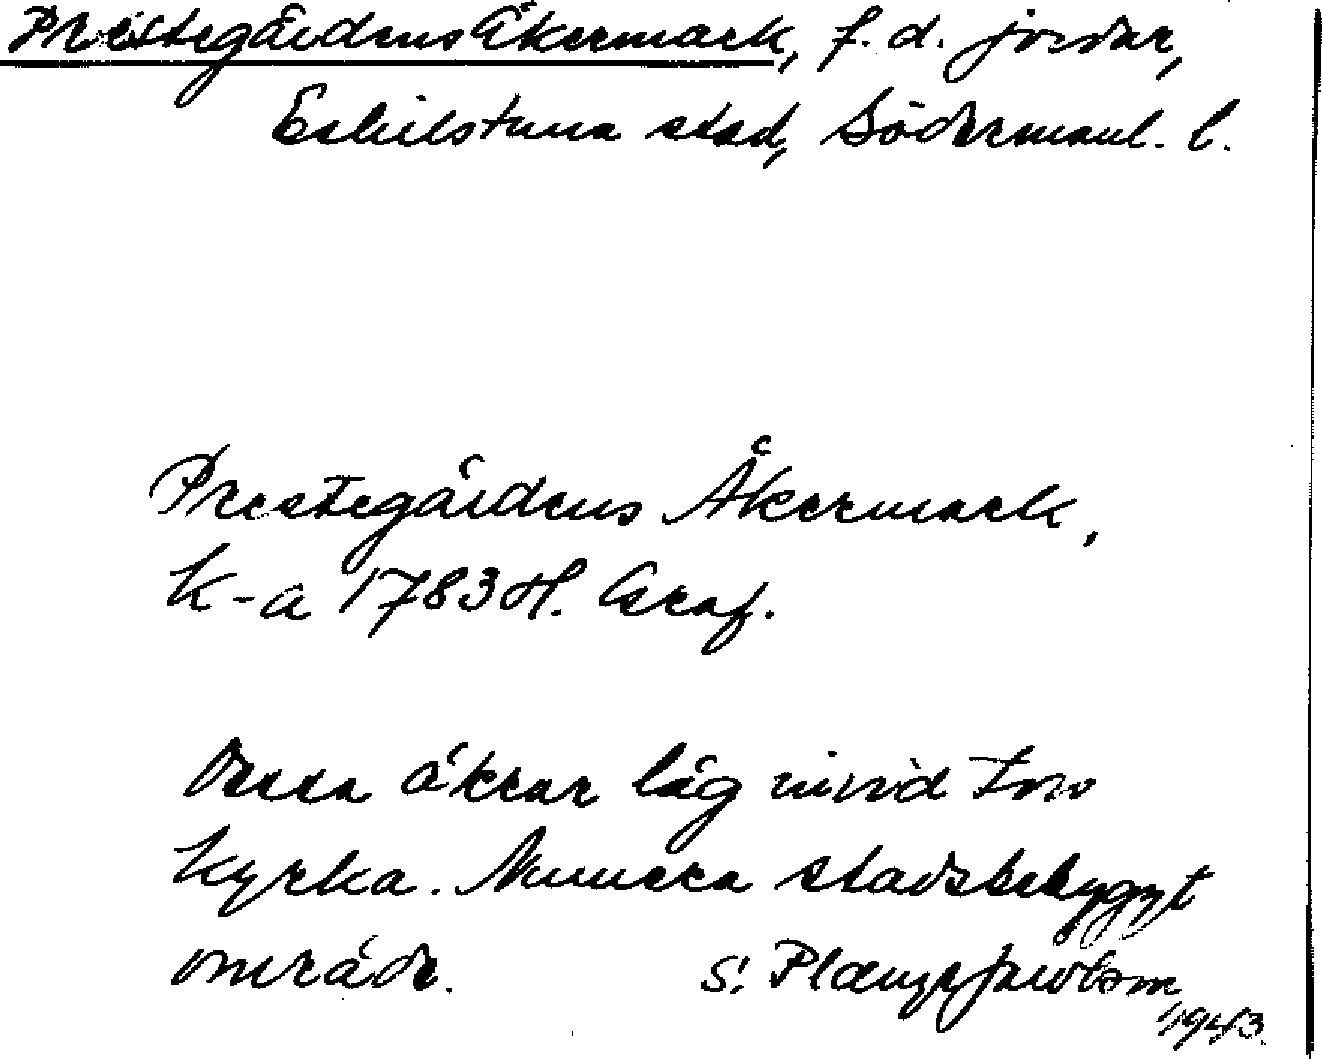 Prästegårdens Åkermark, f. d. jordar,
Eskilstuna stad, Södermanl. l.
Prestegårdens Åkermark,
K-a 1783 H. Graf.
Dessa åkrar låg invid Fors
kyrka. Numera stadsbebyggt
område. S. Plænge Jacobson
1943.